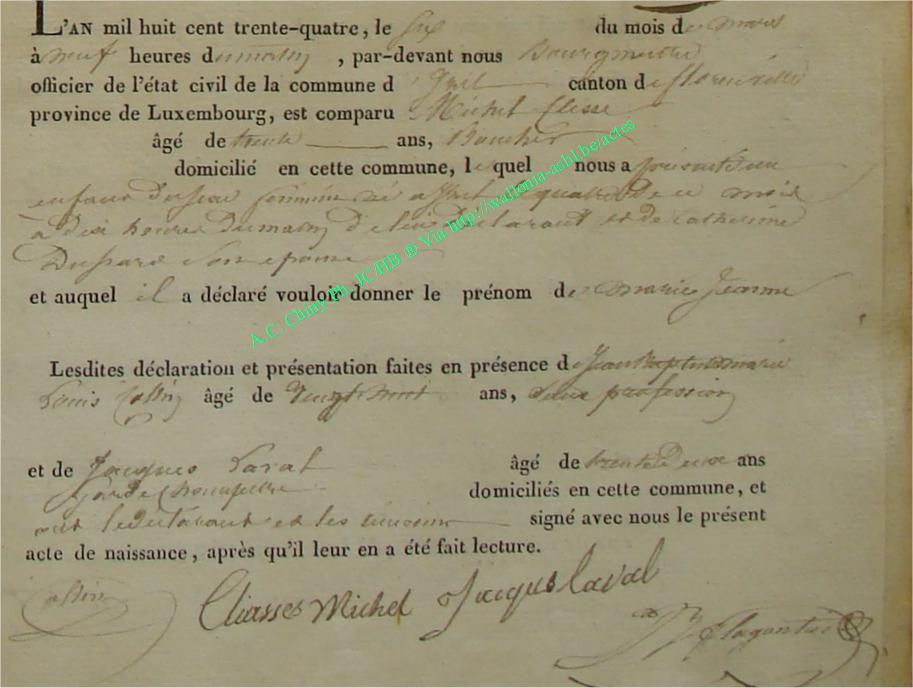 L'AN mil huit cent trente-quatre, le six du mois de mars
à neuf heures du matin, par-devant nous Bourgmestre
officier de l'état civil de la commune d canton de florenville
province de Luxembourg, est comparu Michel
âgé de trente ans,
domicilié en cette commune, lequel nous a présenté un
enfant du sexe féminin né a le quatre de ce mois
à dix heures du matin de lui déclarant et de Catherine
son epouse
et auquel il a déclaré vouloir donner le prénom de marie Jeanne
Lesdites déclaration et présentation faites en présence de Jean Baptiste marie
Louis Collin âgé de vingt ans, sans profession
et de Jacques Laval âgé de trente deux ans
Garde Champetre domiciliés en cette commune, et
ont le déclarant et les temoins signé avec nous le présent
acte de naissance, après qu'il leur en a été fait lecture.
Collin Cliasses Michel Jacques Laval
A.C. Chiny Ph. JCHB ® Via http://wallonia-asbl.be/actes